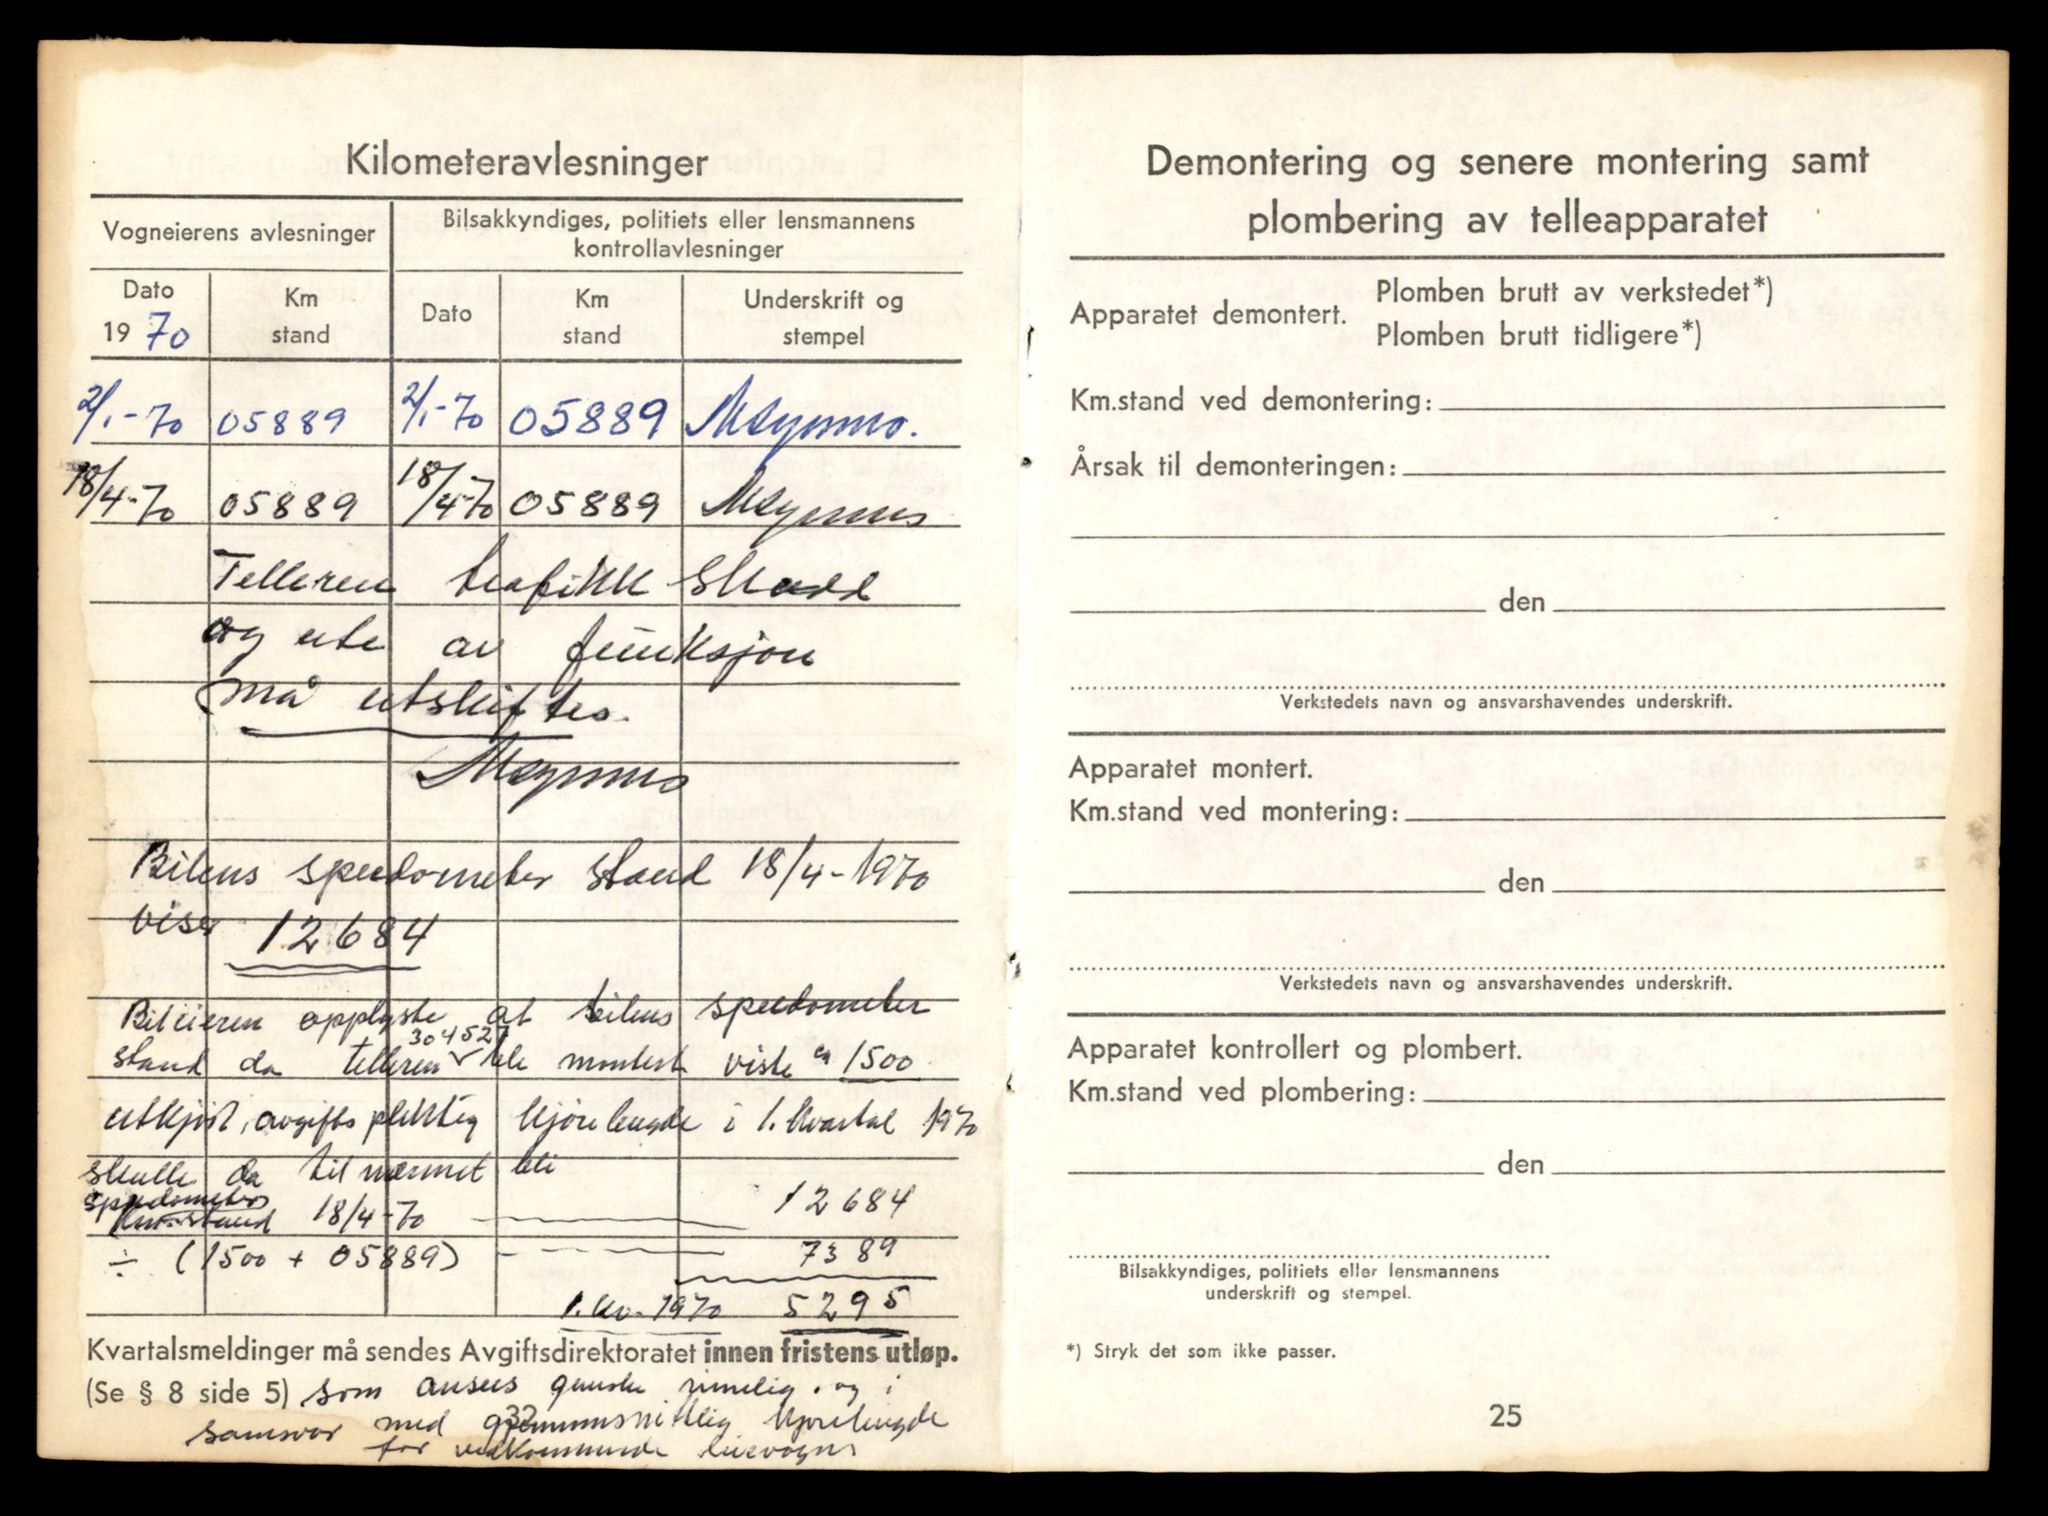 Kilometeravlesninger
Vogneierens avlesninger
Bilsakkyndiges, politiets eller lensmannens
kontrollavlesninger
Dato
1970
Km
stand
Dato
Km
stand
Underskrift og
stempel
2/1-70 05889 2/1-70 05889
18/4-70 05889 18/4-70 05889
Telleren trafikk skadd
og ute av funksjon
må utskiftes.
Bilens speedometer stand 18/4-1970
viser 12684
Bileieren opplyste at bilens speedometer
304527
stand da telleren ble montert viste ca 1500
utkjørt, avgiftspliktig kjørelengde i 1. kvartal 1970
skulle da tilnærmet bli
speedometer
Km.stand 18/4-70 12684
÷ (1500 + 05889) 7389
1. kv. 1970 5295
Kvartalsmeldinger må sendes Avgiftsdirektoratet innen fristens utløp.
(Se § 8 side 5) som anses ganske rimelig. og i
32
samsvar med gjennomsnittlig kjørelengde
for vedkommende leievogn
Demontering og senere montering samt
plombering av telleapparatet
Apparatet demontert.
Plomben brutt av verkstedet*)
Plomben brutt tidligere*)
Km.stand ved demontering:
Årsak til demonteringen:
den
Verkstedets navn og ansvarshavendes underskrift.
Apparatet montert.
Km.stand ved montering:
den
Verkstedets navn og ansvarshavendes underskrift.
Apparatet kontrollert og plombert.
Km.stand ved plombering:
den
Bilsakkyndiges, politiets eller lensmannens
underskrift og stempel.
*) Stryk det som ikke passer.
25